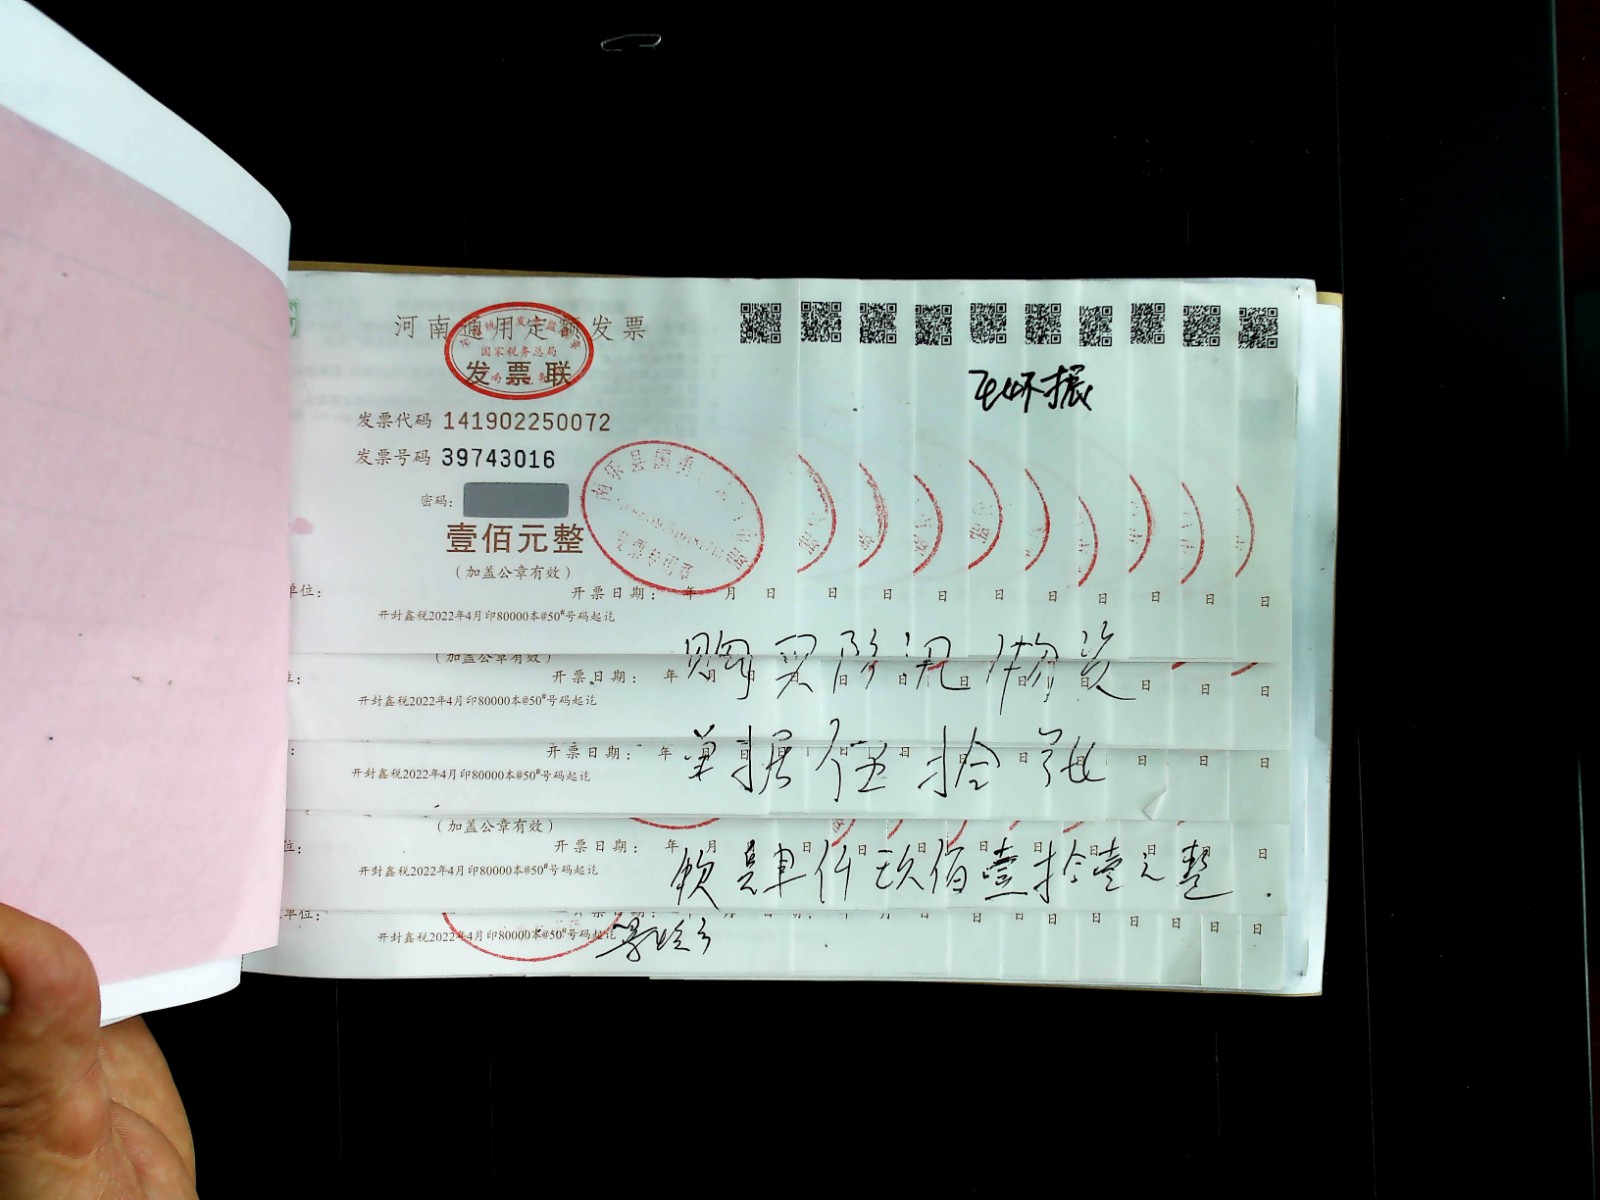 河南通用定额发票
国家税务总局
发票联
发票代码 141902250072
发票号码 39743016
密码：
壹佰元整
（加盖公章有效）
单位： 开票日期： 年 月 日 日 日 日 日 日 日 日 日 日
开封鑫税2022年4月印80000本@50#号码起讫
南乐县
发票专用章
购买防汛物资
（加盖公章有效）
位： 开票日期： 年 月 日
开封鑫税2022年4月印80000本@50#号码起讫
单据伍拾张
开票日期： 年 月 日
开封鑫税2022年4月印80000本@50#号码起讫
（加盖公章有效）
位： 开票日期： 年 月 日
款 肆仟玖佰壹拾壹元整.
开封鑫税2022年4月印80000本@50#号码起讫
单位： 开票日期： 年 月 日
开封鑫税2022年4月印80000本@50#号码起讫